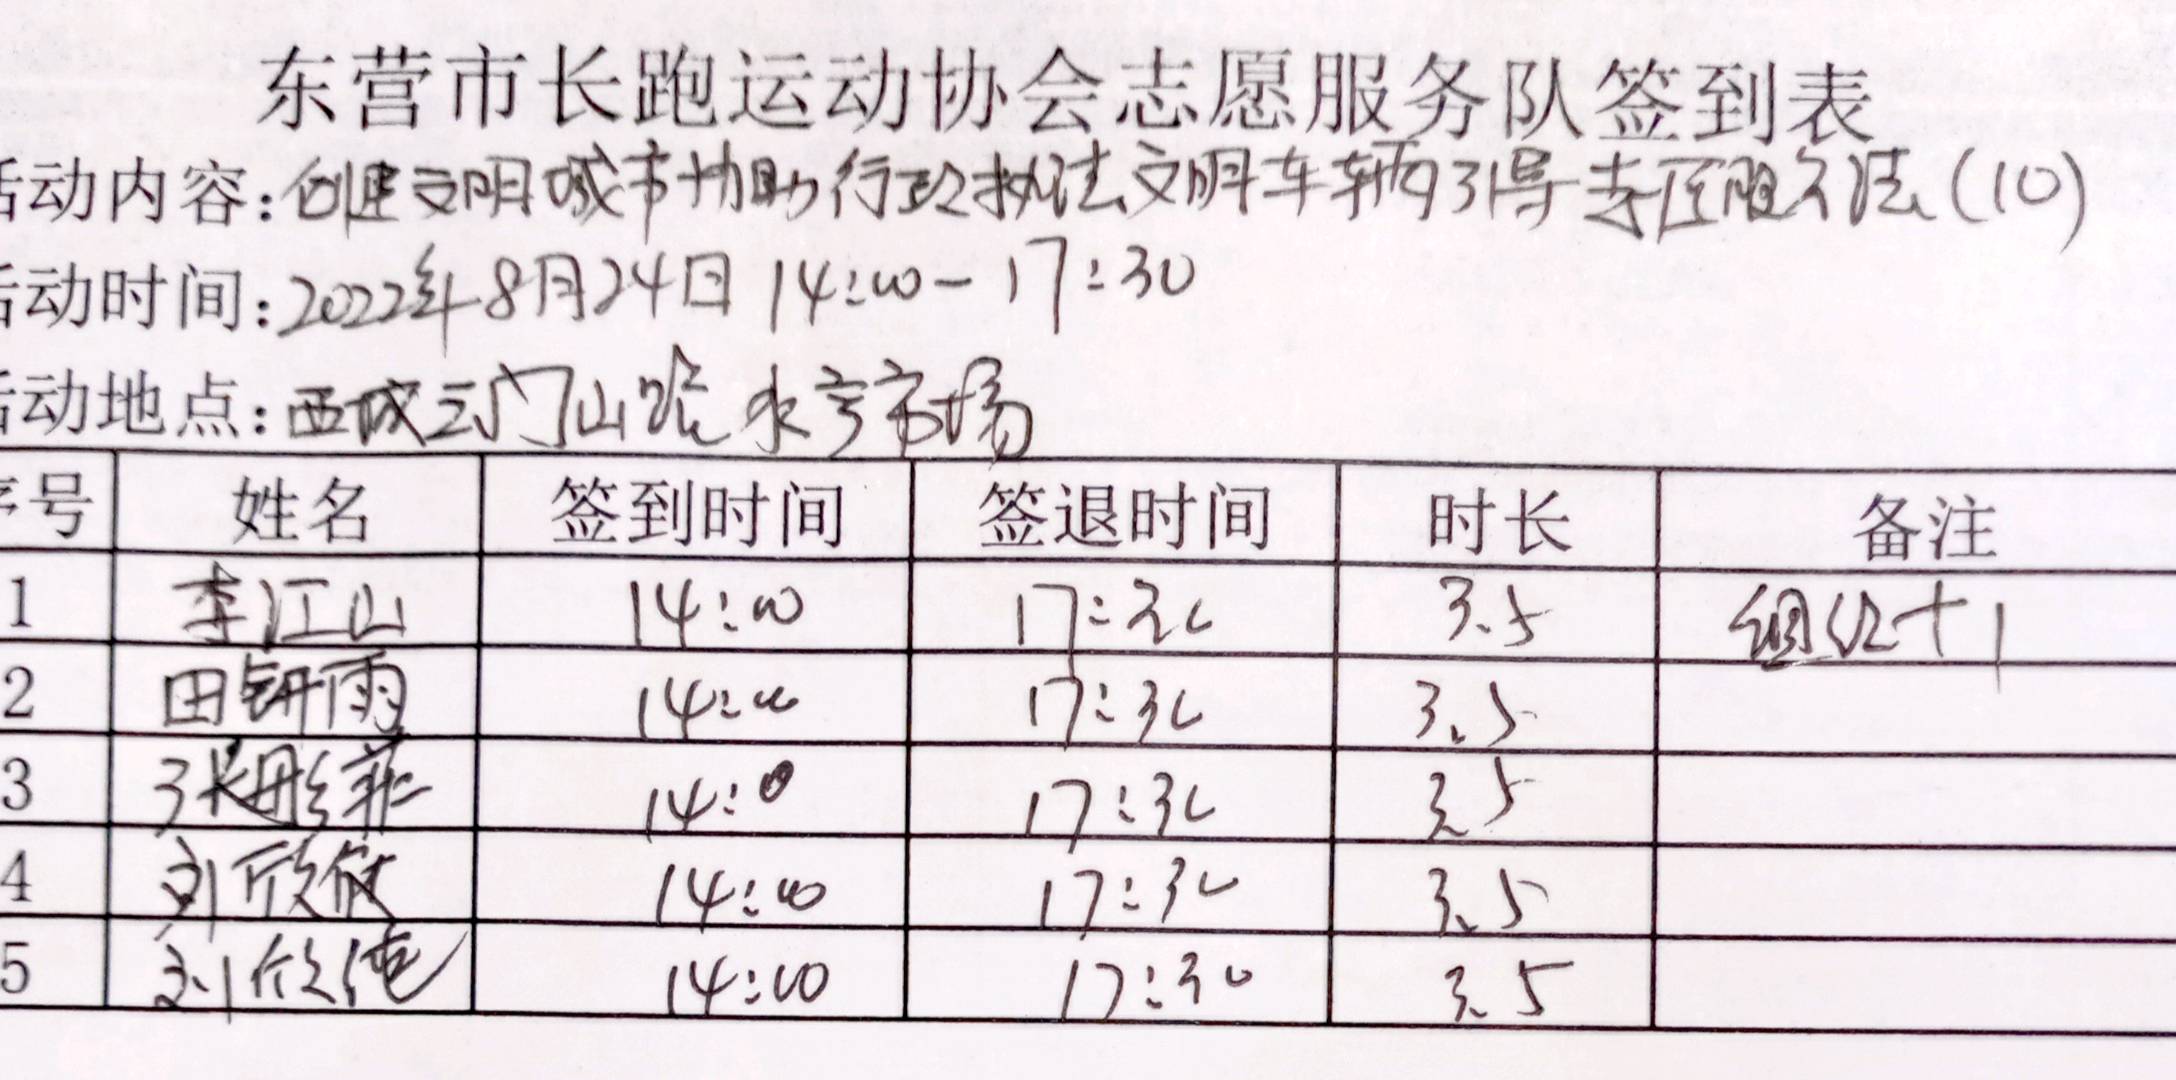 东营市长跑运动协会志愿服务队签到表
活动内容:创建文明城市协助行政执法文明车辆引导(10)
活动时间:2022年8月24日 14:00-17:30
活动地点:西城云门山路水市场
序号 姓名 签到时间 签退时间 时长 备注
1 李江山 14:00 17:30 3.5 组织+1
2 田钘雨 14:00 17:30 3.5
3 张彤菲 14:0 17:30 3.5
4 刘欣 14:00 17:30 3.5
5 刘欣 14:00 17:30 3.5